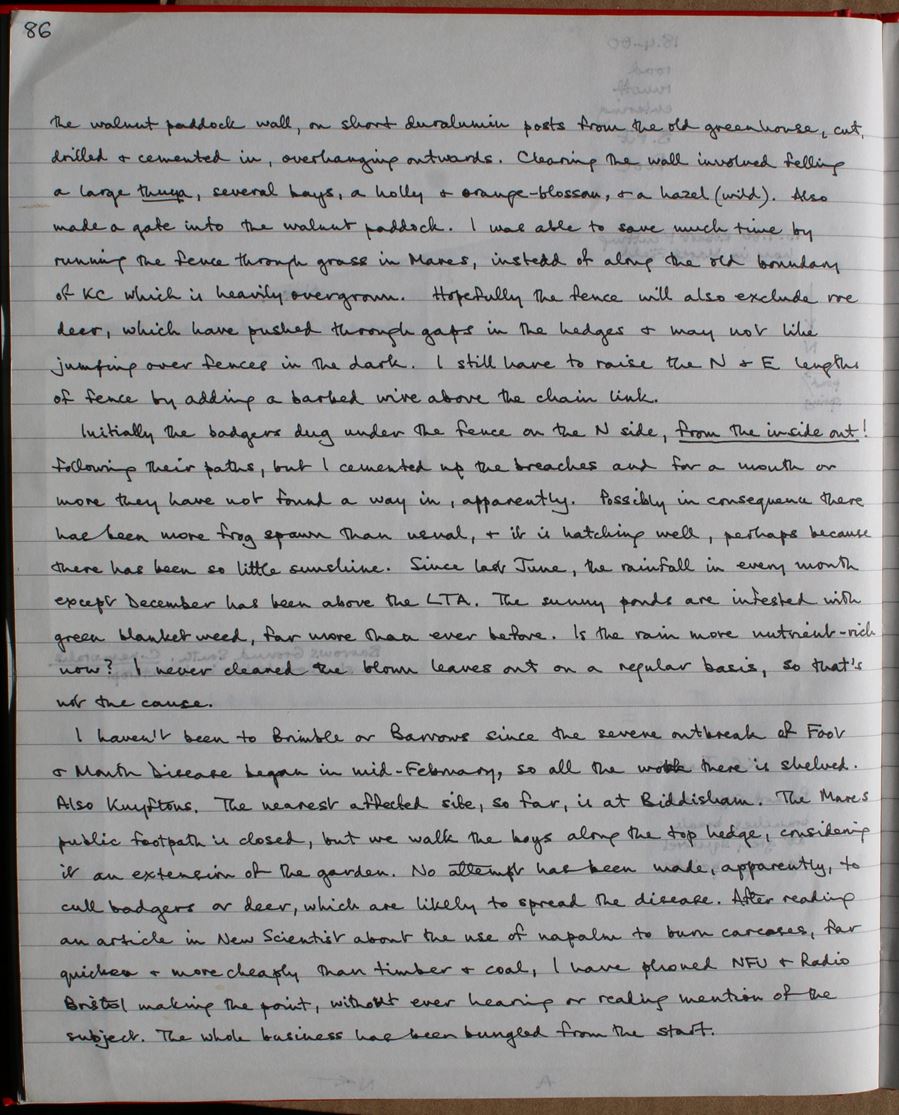 86
the walnut paddock wall, on short duralumin posts from the old greenhouse, cut,
drilled & cemented in, overhanging outwards. Clearing the wall involved felling
a large thuya, several bays, a holly & orange-blossom, & a hazel (wild). Also
made a gate into the walnut paddock. I was able to save much time by
running the fence through grass in Mares, instead of along the old boundary
of KC which is heavily overgrown. Hopefully the fence will also exclude roe
deer, which have pushed through gaps in the hedges & may not like
jumping over fences in the dark. I still have to raise the N & E lengths
of fence by adding a barbed wire above the chain link.
Initially the badgers dug under the fence on the N side, from the inside out!
following their paths, but I cemented up the breaches and for a month or
more they have not found a way in, apparently. Possibly in consequence there
has been more frog spawn than usual, & it is hatching well, perhaps because
there has been so little sunshine. Since last June, the rainfall in every month
except December has been above the LTA. The sunny ponds are infested with
green blanket weed, far more than ever before. Is the rain more nutrient-rich
now? I never cleared the blown leaves out on a regular basis, so that's
not the cause.
I haven't been to Brimble or Barrows since the severe outbreak of Foot
& Mouth Disease began in mid-February, so all the work there is shelved.
Also Knyftons. The nearest affected site, so far, is at Biddisham. The Mares
public footpath is closed, but we walk the boys along the top hedge, considering
it an extension of the garden. No attempt has been made, apparently, to
cull badgers or deer, which are likely to spread the disease. After reading
an article in New Scientist about the use of napalm to burn carcases, far
quicker & more cheaply than timber & coal, I have phoned NFU & Radio
Bristol making the point, without ever hearing or reading mention of the
subject. The whole business has been bungled from the start.